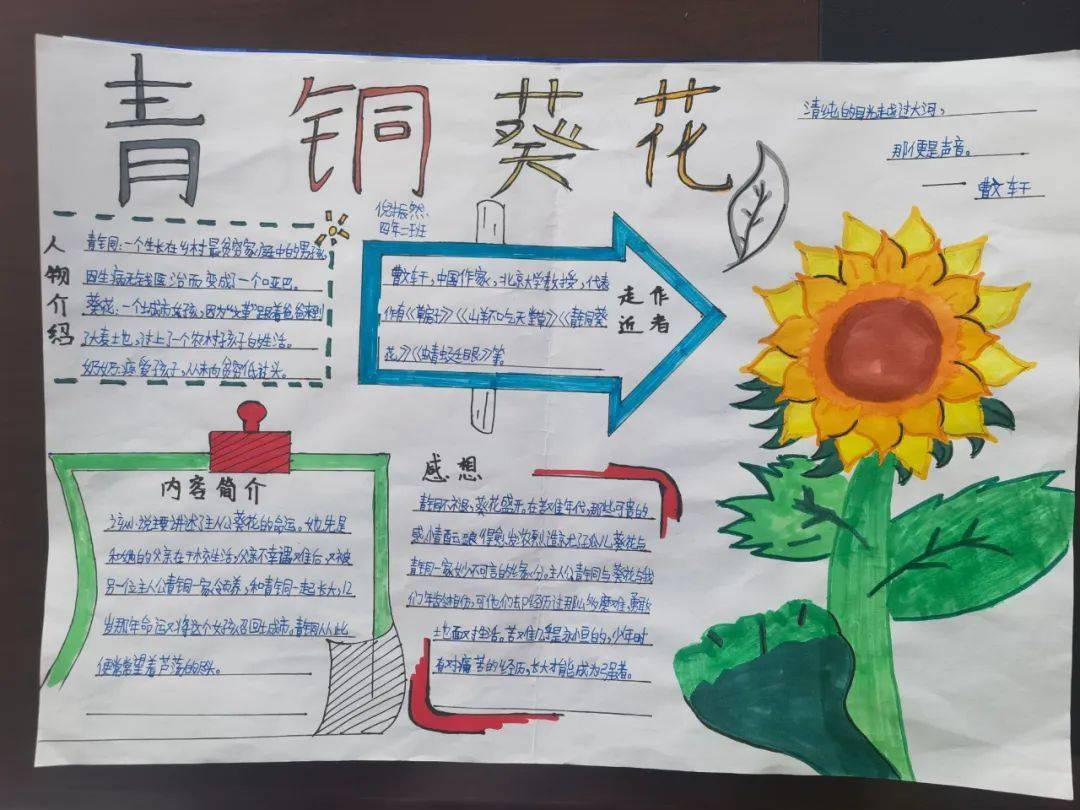 青铜葵花
清纯的目光越过大河，
那便是声音。
—— 曹文轩
人物介绍
青铜：一个生长在乡村最贫穷家庭中的男孩，
因生病无钱医治而变成了一个哑巴。
葵花：一个城市女孩，因为“文革”跟着爸爸来到
了大麦地，过上了一个农村孩子的生活。
奶奶：疼爱孩子，从未向贫穷低过头。
四年二班
走近作者
曹文轩，中国作家，北京大学教授，代表
作有《草房子》《山羊不吃天堂草》《青铜葵
花》《蜻蜓眼》等。
内容简介
该小说主要讲述了主人公葵花的命运。她先是
和她的父亲在干校生活，父亲不幸遇难后，又被
另一位主人公青铜一家领养，和青铜一起长大，12
岁那年命运又将这个女孩召回城市，青铜从此
便常常望着芦荡的尽头。
感想
青铜不朽，葵花盛开，在艰难年代，那些可贵的
感情
葵花与
青铜一家妙不可言的缘分。主人公青铜与葵花与我
们年龄相仿，可他们却经历过那么多磨难，勇敢
地面对生活。苦难几乎是永恒的，少年时
有对痛苦的经历，长大才能成为强者。